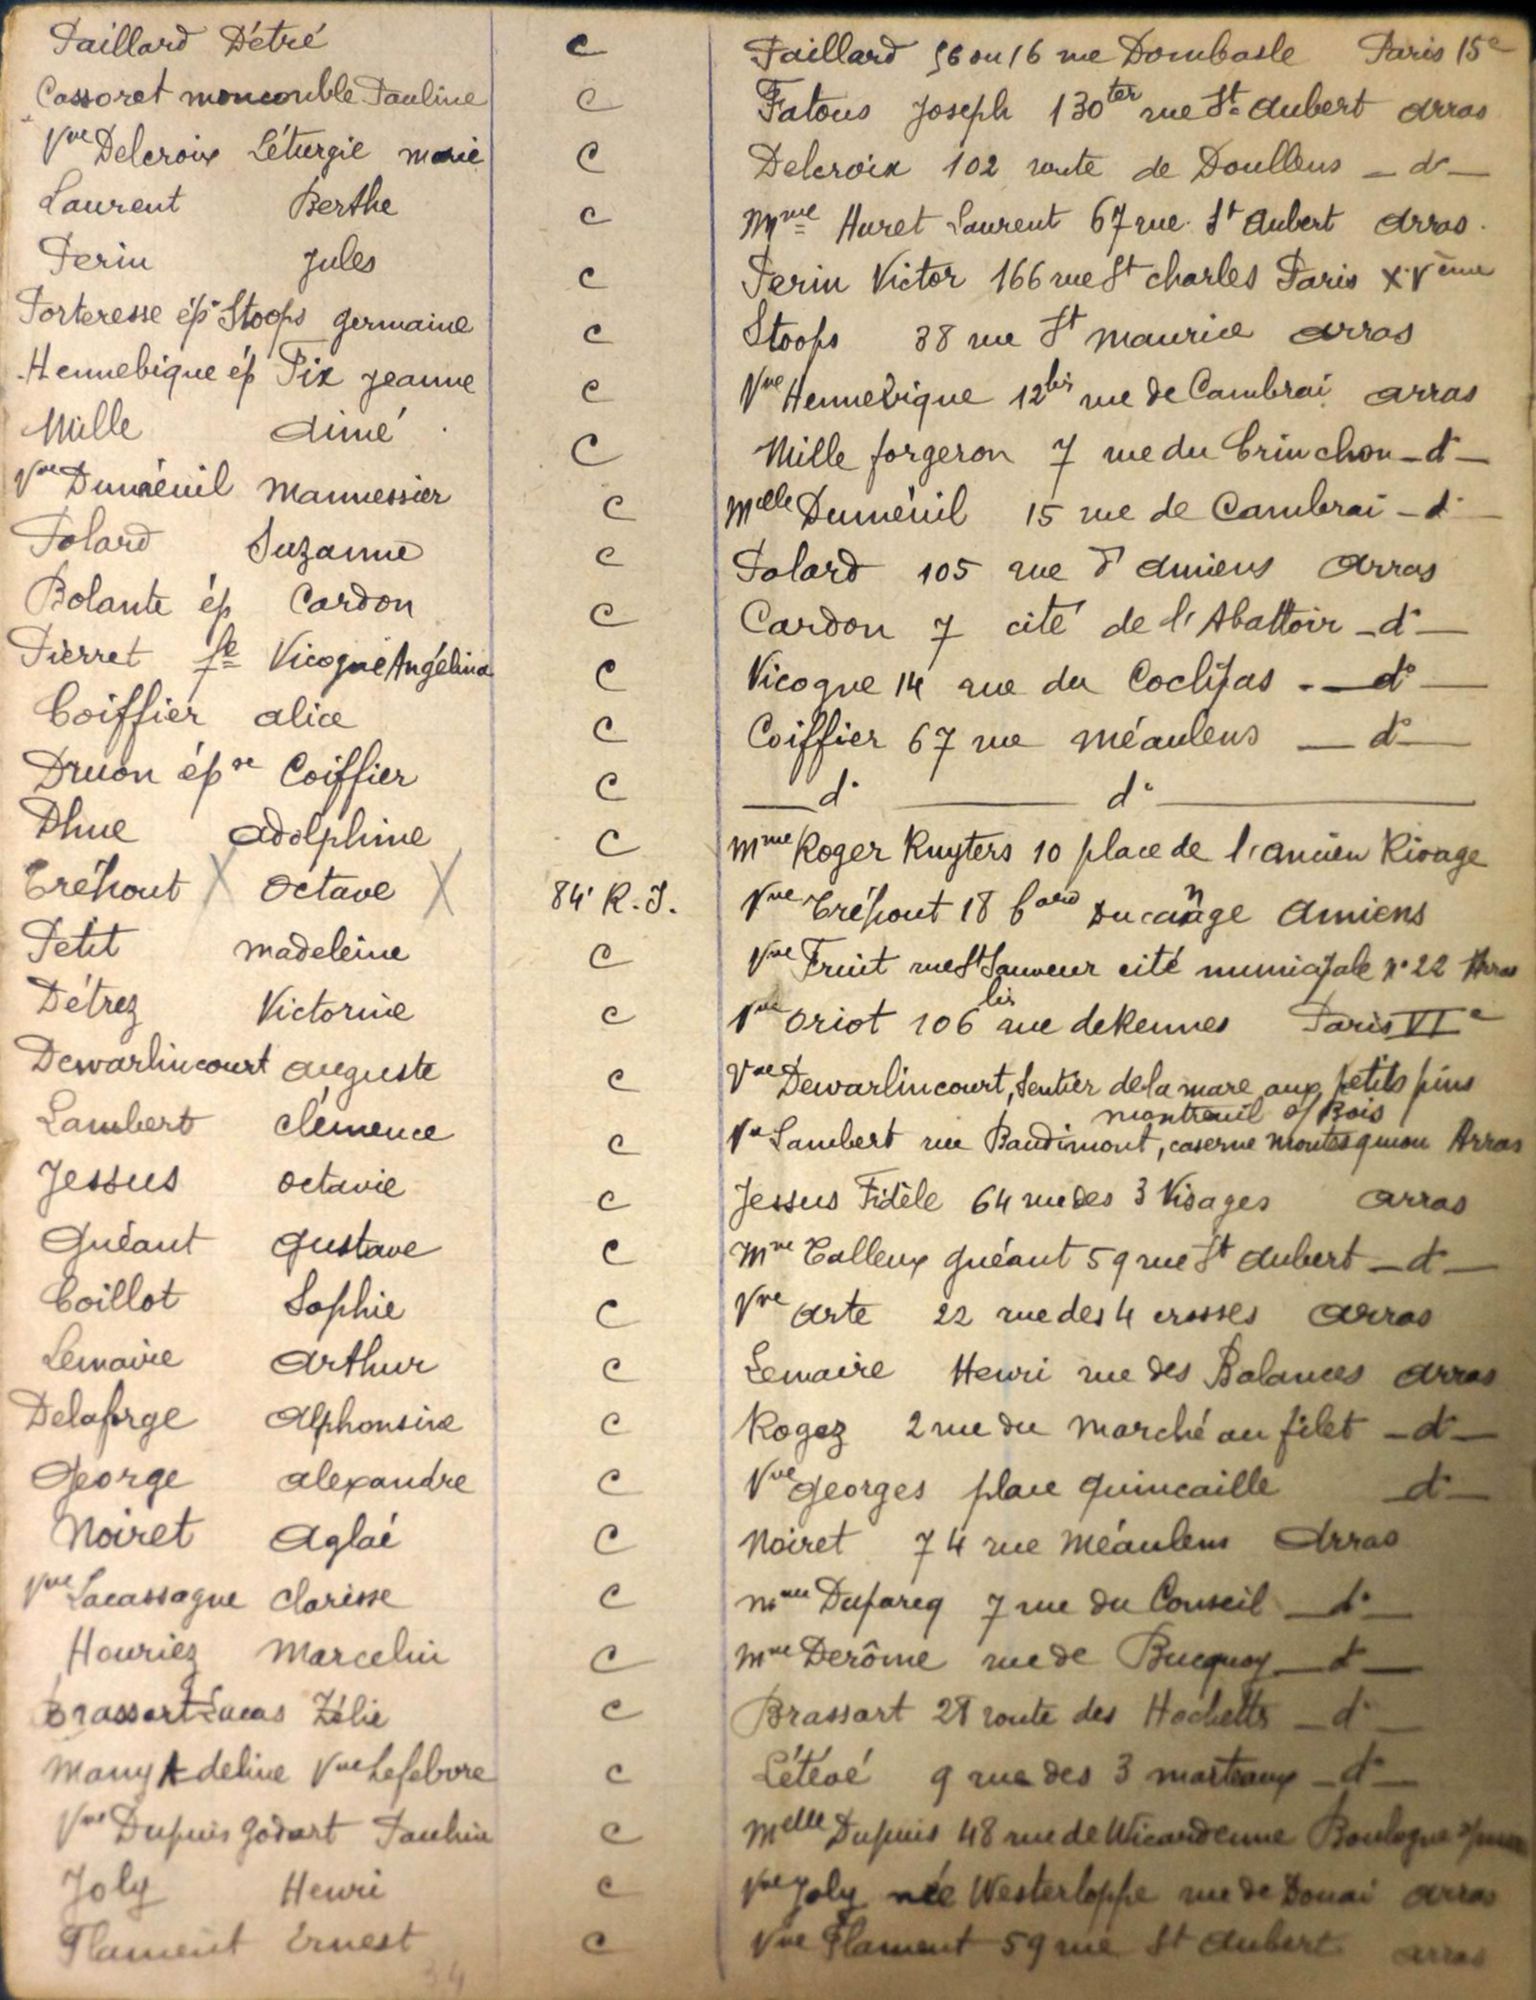 Paillard Détré c Paillard 56 ou 16 rue Dombasle Paris 15e
Cassoret moncomble Pauline c Fatous Joseph 130ter rue St. Aubert Arras
Vve Delcroix Léturgie Marie c Delcroix 102 route de Doullens _ d° _
Laurent Berthe c Mme Huret Laurent 67 rue St Aubert Arras.
Perin Jules c Perin Victor 166 rue St Charles Paris XVème
Porteresse ép Stoops Germaine c Stoops 38 rue St Maurice Arras
Hennebique ép Pix Jeanne c Vve Hennebique 12bis rue de Cambrai Arras
Mille Aimé c Mille forgeron 7 rue du Crinchon _ d° _
Vve Duménil Mannessier c Melle Duménil 15 rue de Cambrai _ d° _
Polard Suzanne c Polard 105 rue d'Amiens Arras
Bolante ép Cardon c Cardon 7 cité de l'Abattoir _ d° _
Pierret fe Vicogne Angélina c Vicogne 14 rue du Coclipas _ d° _
Coiffier Alice c Coiffier 67 rue Méaulens _ d° _
Druon épse Coiffier c _ d° _ d° _
Dhue Adolphine c Mme Roger Ruyters 10 place de l'ancien Rivage
Tréhout X Octave X 84e R.I. Vve Tréhout 18 bard Ducange Amiens
Petit Madeleine c Vve Fruit rue St Sauveur cité municipale n° 22 Arras
Détrez Victorine c Vve Oriot 106 bis rue de Rennes Paris VIe
Dewarlincourt Auguste c Vve Dewarlincourt, Sentier de la mare aux petits pins
Montreuil s/ Bois
Lambert Clémence c Ve Lambert rue Baudimont, caserne Montesquiou Arras
Jessus Octavie c Jessus Fidèle 64 rue des 3 Visages Arras
Guéant Gustave c Mme Talleux Guéant 59 rue St Aubert _ d° _
Coillot Sophie c Vve Arte 22 rue des 4 crosses Arras
Lemaire Arthur c Lemaire Henri rue des Balances Arras
Delaforge Alphonsine c Rogez 2 rue du Marché au filet _ d° _
George Alexandre c Vve Georges place Quincaille _ d° _
Noiret Aglaé c Noiret 74 rue Méaulens Arras
Vve Lacassagne Clarisse c Mme Duparcq 7 rue du Conseil _ d° _
Houriez Marcelin c Mme Derôme rue de Bucquoy _ d° _
Brassart Lucas Zélie c Brassart 28 route des Hochettes _ d° _
Many Adeline Vve Lefebvre c Létévé 9 rue des 3 marteaux _ d° _
Vve Dupuis Godart Paulin c Melle Dupuis 48 rue de Wicardenne Boulogne s/mer
Joly Henri c Vve Joly née Westerloppe rue de Douai Arras
Flament Ernest c Vve Flament 59 rue St Aubert Arras
34